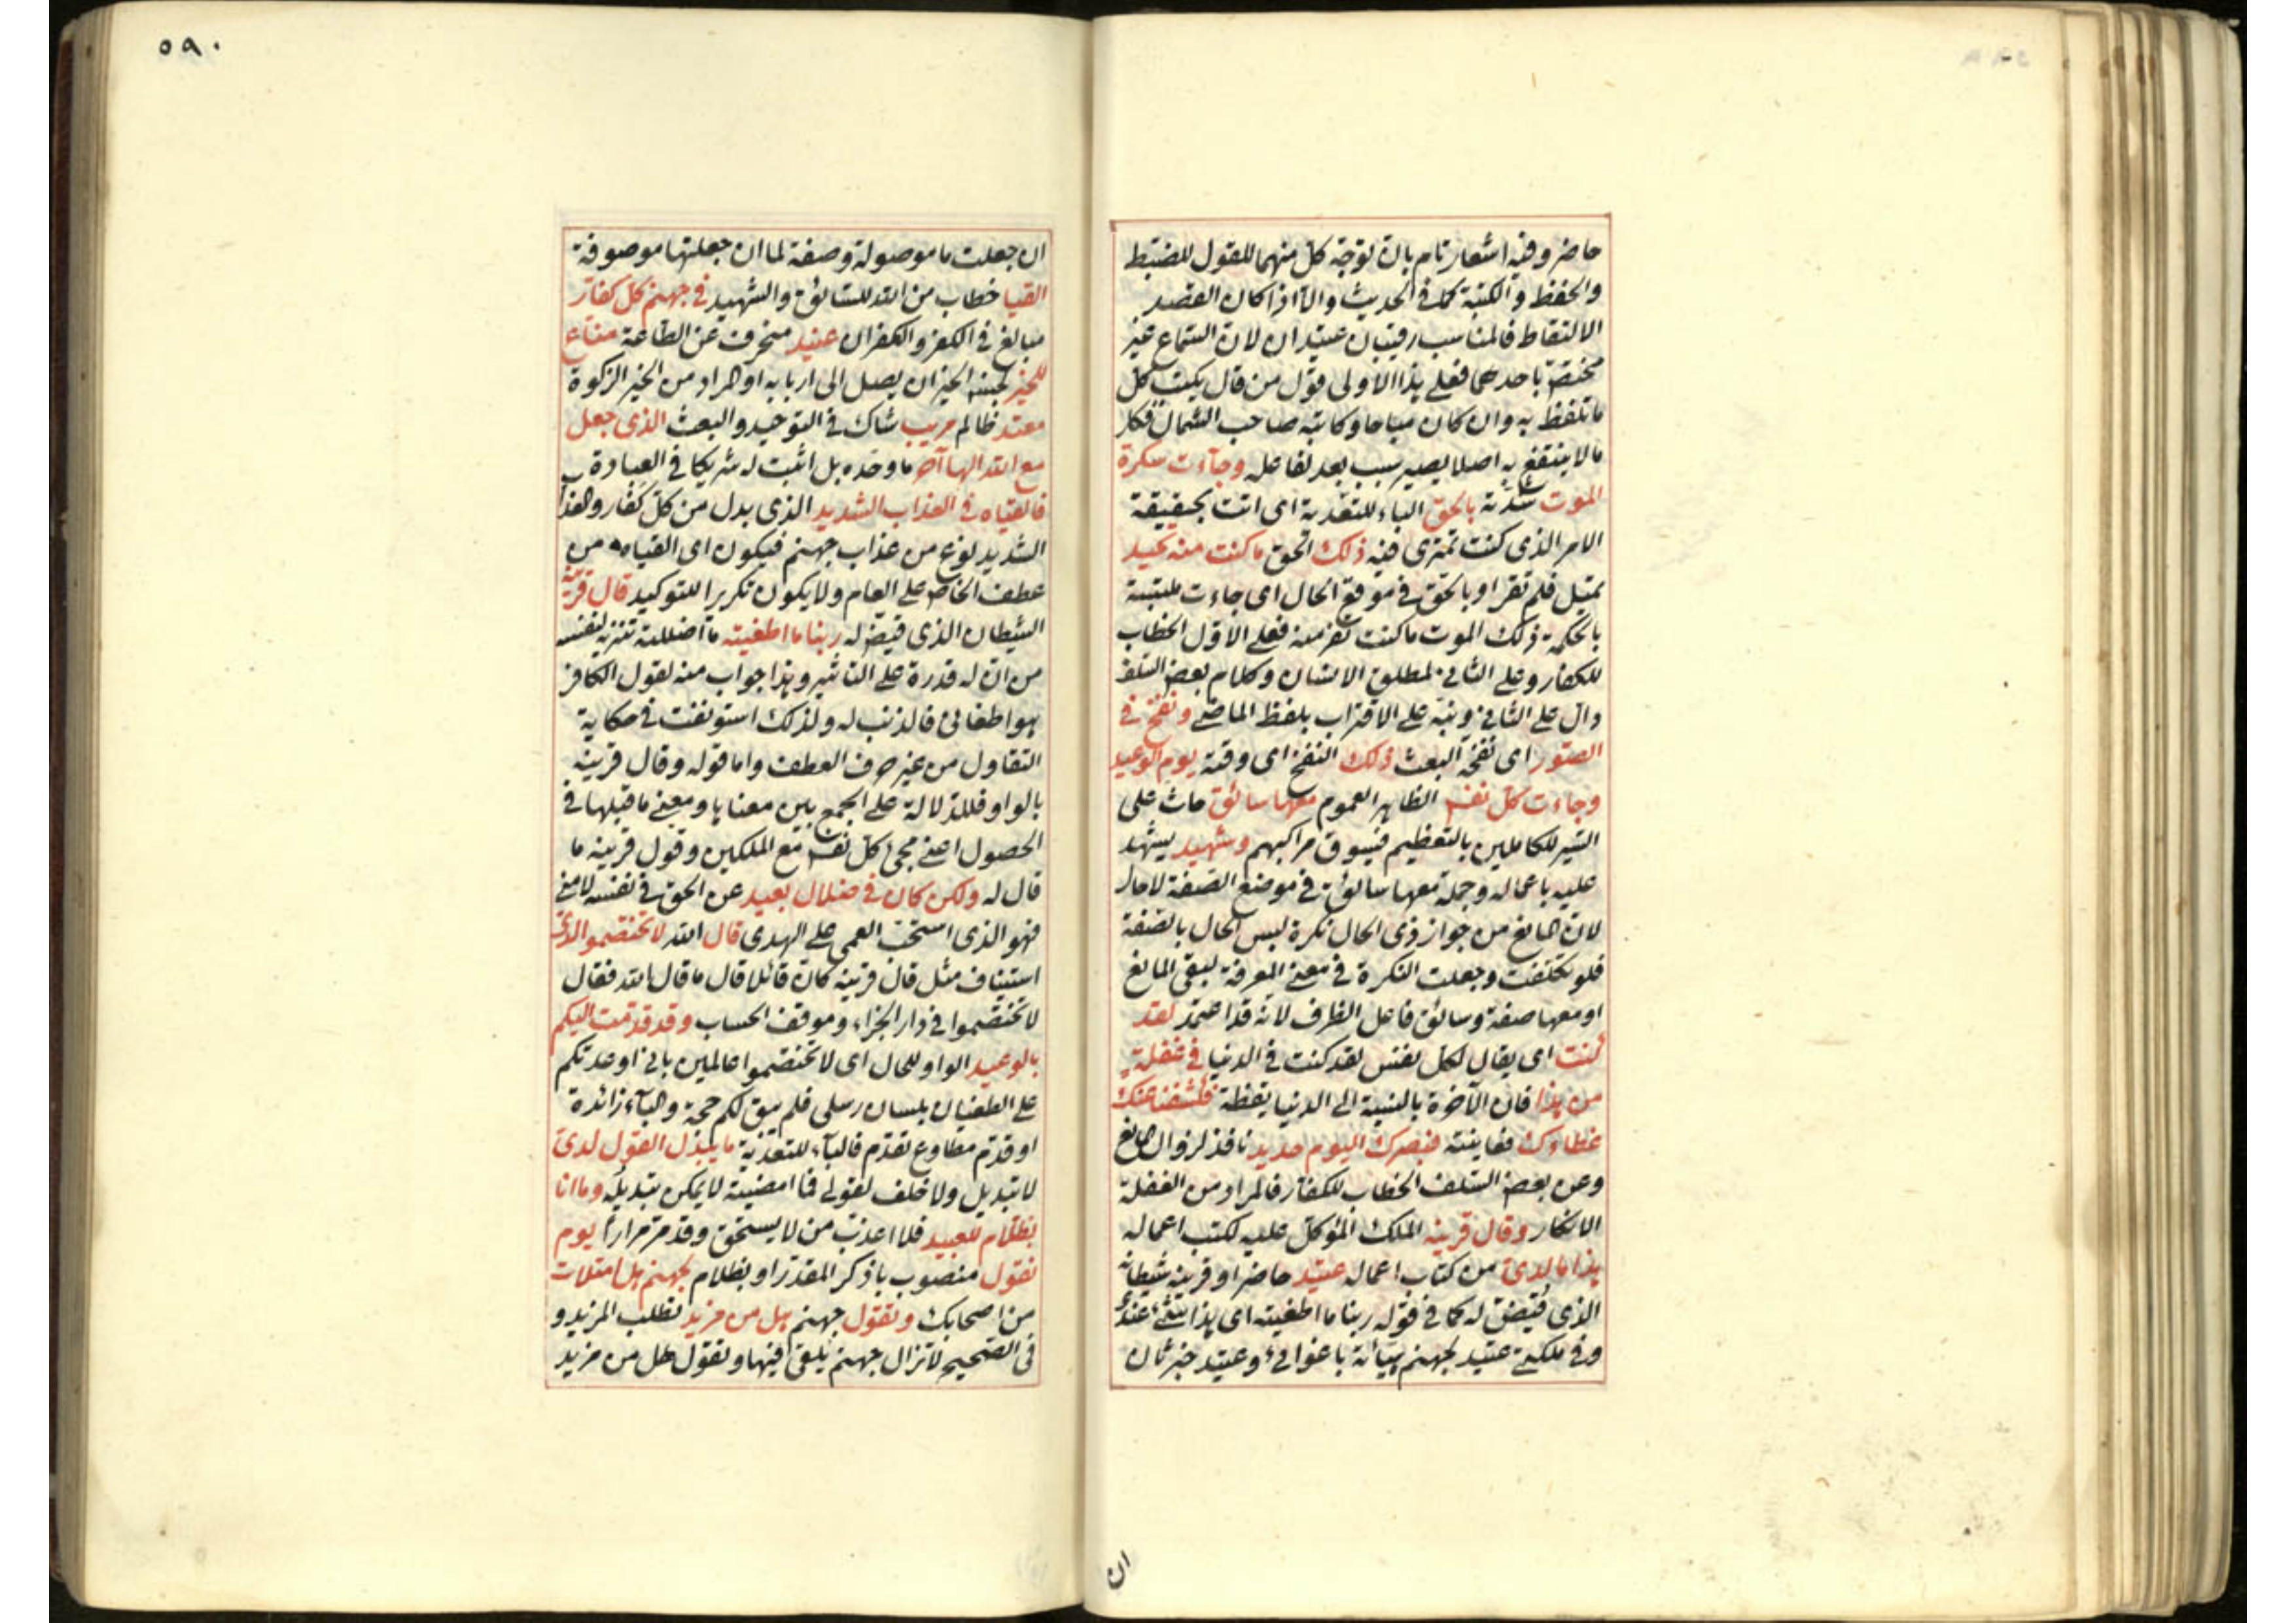 حاضر وفيه اشعار تام بان توجه كل منهما للقول للضبط
والحفظ والكتبة كما في الحديث والا اذا كان القصد
الالتقاط فالمناسب رقيبان عتيدان لان السماع غير
مختص باحدهما فعلى هذا الاولى قول من قال يكتب كل
ما تلفظ به وان كان مباحا وكاتبه صاحب الشمال فكل
ما لا ينتفع به اصلا يصير سبب بعد لفاعله وجاءت سكرة
الموت شدته بالحق الباء للتعدية اى اتت بحقيقة
الامر الذى كنت تمترى فيه ذلك الحق ما كنت منه تحيد
تميل فلم تقر او بالحق في موقع الحال اى جاءت ملتبسة
بالحكمة ذلك الموت ما كنت تفر منه فعلى الاول الخطاب
للكفار وعلى الثاني لمطلق الانسان وكلام بعض السلف
دال على الثاني ونبه على الاقتراب بلفظ الماضى ونفخ في
الصور اى نفخة البعث ذلك النفخ اى وقته يوم الوعيد
وجاءت كل نفس الظاهر العموم معها سائق حاث على
السير للكاملين بالتعظيم فيسوق مراكبهم وشهيد يشهد
عليه باعماله وجملة معها سائق في موضع الصفة لا حال
لان المانع من جواز ذى الحال نكرة لبس الحال بالصفة
فلو تكلفت وجعلت النكرة في معنى المعرفة لبقى المانع
او معها صفة وسائق فاعل الظرف لانه قد اعتمد لقد
كنت اى يقال لكل نفس لقد كنت في الدنيا في غفلة
من هذا فان الآخرة بالنسبة الى الدنيا يقظة فكشفنا عنك
غطاءك فعاينته فبصرك اليوم حديد نافذ لزوال المانع
وعن بعض السلف الخطاب للكفار فالمراد من الغفلة
الانكار وقال قرينه الملك الموكل عليه لكتب اعماله
هذا ما لدى من كتاب اعماله عتيد حاضر او قرينه شيطانه
الذى قيض له كما في قوله ربنا ما اطغيته اى هذا شىء عندى
وفي ملكتى عتيد لجهنم هيأته باغوائى وعتيد خبر ثان
ان
٥٩٠
ان جعلت ما موصولة وصفة لما ان جعلتها موصوفة
القيا خطاب من الله للسائق والشهيد في جهنم كل كفار
مبالغ في الكفر والكفران عنيد منحرف عن الطاعة مناع
للخير لجنس الخير ان يصل الى اربابه او المراد من الخير الزكوة
معتد ظالم مريب شاك في التوحيد والبعث الذى جعل
مع الله الها آخر ما وحده بل اثبت له شريكا في العبادة
فالقياه في العذاب الشديد الذى بدل من كل كفار وهذا
الشديد نوع من عذاب جهنم فيكون اى القياه من
عطف الخاص على العام ولا يكون تكريرا للتوكيد قال قرينه
الشيطان الذى قيض له ربنا ما اطغيته ما اضللته تنزيه لنفسه
من ان له قدرة على التاثير وهذا جواب منه لقول الكافر
هو اطغانى فالذنب له ولذلك استونفت في حكاية
التقاول من غير حرف العطف واما قوله وقال قرينه
بالواو فللدلالة على الجمع بين معناها ومعنى ما قبلها في
الحصول اعنى مجى كل نفس مع الملكين وقول قرينه ما
قال له ولكن كان في ضلال بعيد عن الحق في نفسه لا منى
فهو الذى استحب العمى على الهدى قال الله لا تختصموا لدى
استيناف مثل قال قرينه كان قائلا قال ما قال الله فقال
لا تختصموا في دار الجزاء وموقف الحساب وقد قدمت اليكم
بالوعيد الواو للحال اى لا تختصموا عالمين بانى اوعدتكم
على الطغيان بلسان رسلى فلم يبق لكم حجة والباء زائدة
او قدم مطاوع تقدم فالباء للتعدية ما يبدل القول لدى
لا تبديل ولا خلف لقولى فما امضيته لا يمكن تبديله وما انا
بظلام للعبيد فلا اعذب من لا يستحق وقد مر مرارا يوم
نقول منصوب باذكر المقدر او بظلام لجهنم هل امتلات
من اصحابك وتقول جهنم هل من مزيد تطلب المزيد و
في الصحيح لا تزال جهنم يلقى فيها وتقول هل من مزيد